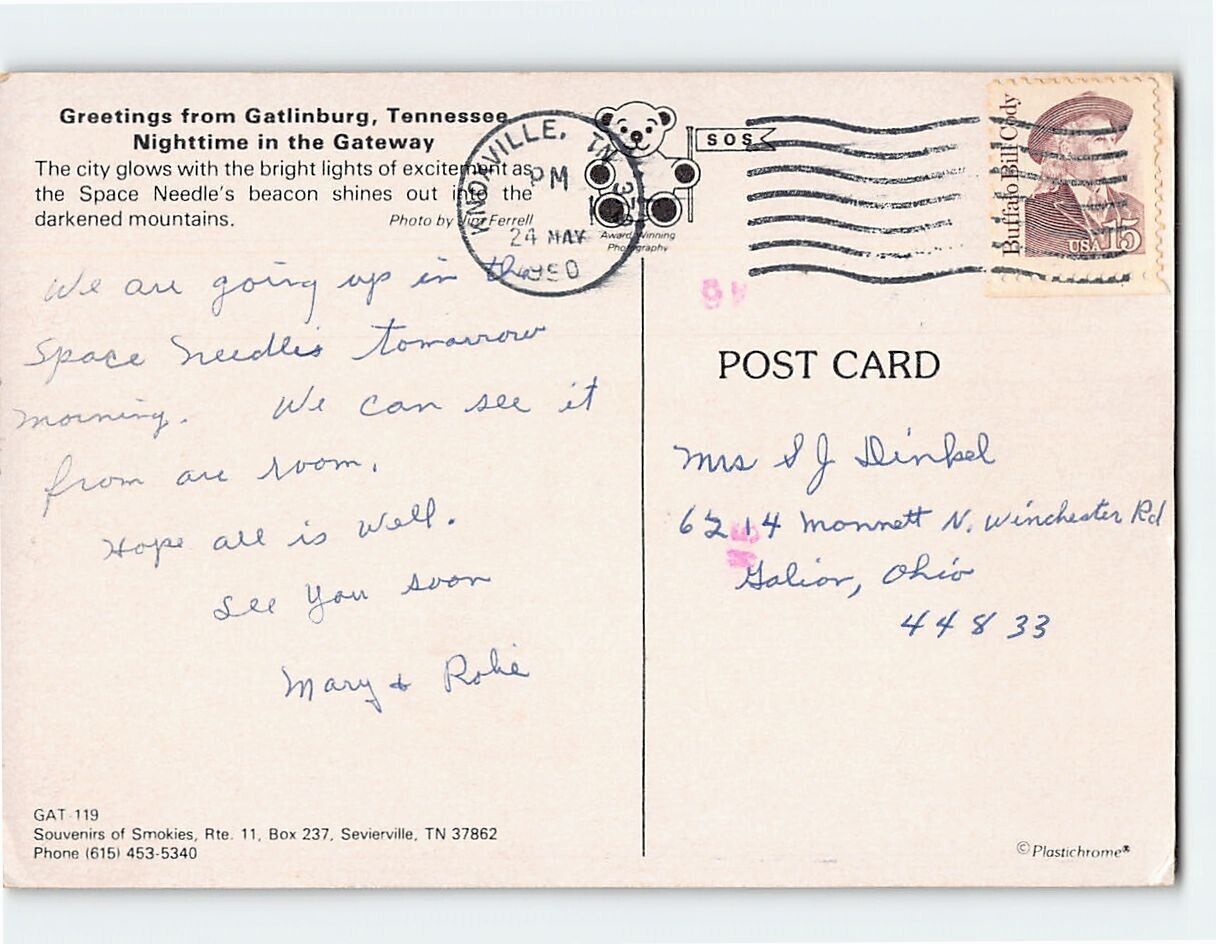 Greetings from Gatlinburg, Tennessee
Nighttime in the Gateway
The city glows with the bright lights of excitement as
the Space Needle's beacon shines out into the
darkened mountains.
Photo by Jim Ferrell
SOS
Award Winning
Photography
KNOXVILLE, TN
PM
24 MAY
1990
Buffalo Bill Cody
USA 15
We are going up in the
Space Needle's tomorrow
morning. We can see it
from are room.
Hope all is well.
See You soon
Mary & Robie
POST CARD
Mrs S J Dinkel
6214 Monnett N. Winchester Rd
Galion, Ohio
44833
GAT-119
Souvenirs of Smokies, Rte. 11, Box 237, Sevierville, TN 37862
Phone (615) 453-5340
©Plastichrome®